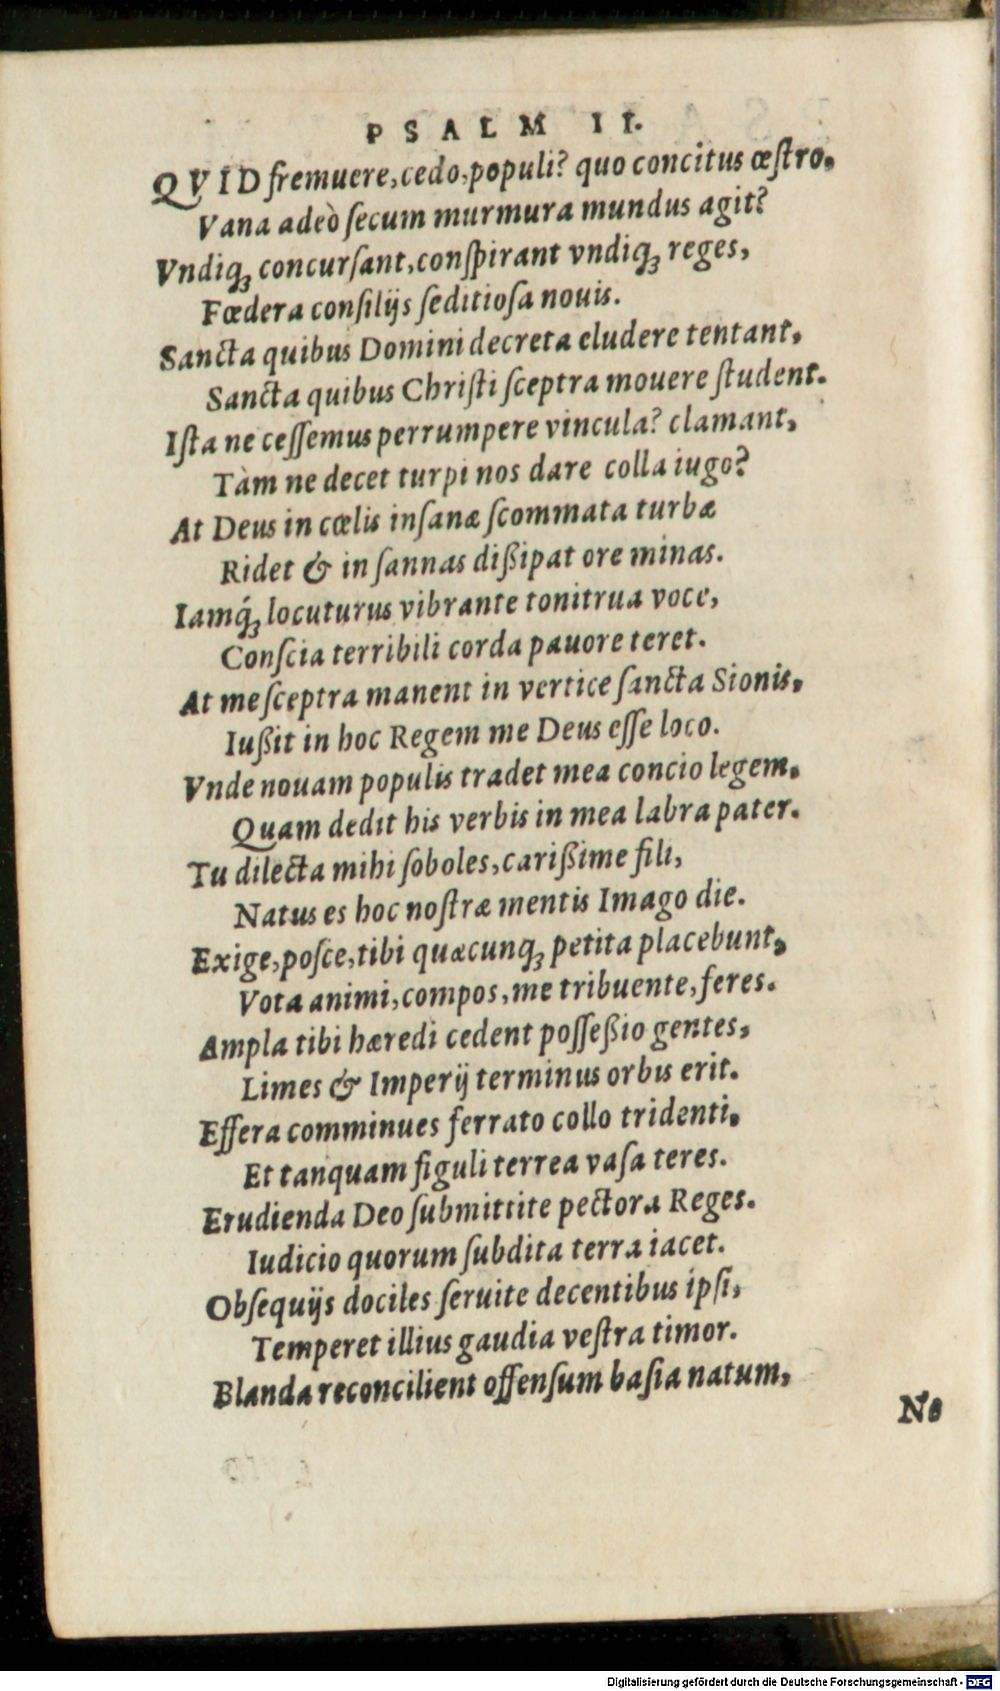 PSALM II.
QVID fremuere, cedo, populi? quo concitus œſtro,
Vana adeò ſecum murmura mundus agit?
Vndiqꝫ concurſant, conſpirant vndiqꝫ reges,
Fœdera conſilijs ſeditioſa nouis.
Sancta quibus Domini decreta eludere tentant,
Sancta quibus Chriſti ſceptra mouere ſtudent.
Iſta ne ceſſemus perrumpere vincula? clamant,
Tàm ne decet turpi nos dare colla iugo?
At Deus in cœlis inſanæ ſcommata turbæ
Ridet & in ſannas dißipat ore minas.
Iamq́ꝫ locuturus vibrante tonitrua voce,
Conſcia terribili corda pauore teret.
At me ſceptra manent in vertice ſancta Sionis,
Iußit in hoc Regem me Deus eſſe loco.
Vnde nouam populis tradet mea concio legem,
Quam dedit his verbis in mea labra pater.
Tu dilecta mihi ſoboles, carißime fili,
Natus es hoc noſtræ mentis Imago die.
Exige, poſce, tibi quæcunqꝫ petita placebunt,
Vota animi, compos, me tribuente, feres.
Ampla tibi hæredi cedent poſſeßio gentes,
Limes & Imperij terminus orbis erit.
Effera comminues ferrato collo tridenti,
Et tanquam figuli terrea vaſa teres.
Erudienda Deo ſubmittite pectora Reges.
Iudicio quorum ſubdita terra iacet.
Obſequijs dociles ſeruite decentibus ipſi,
Temperet illius gaudia veſtra timor.
Blanda reconcilient offenſum baſia natum,
Ne
Digitalisierung gefördert durch die Deutsche Forschungsgemeinschaft - DFG